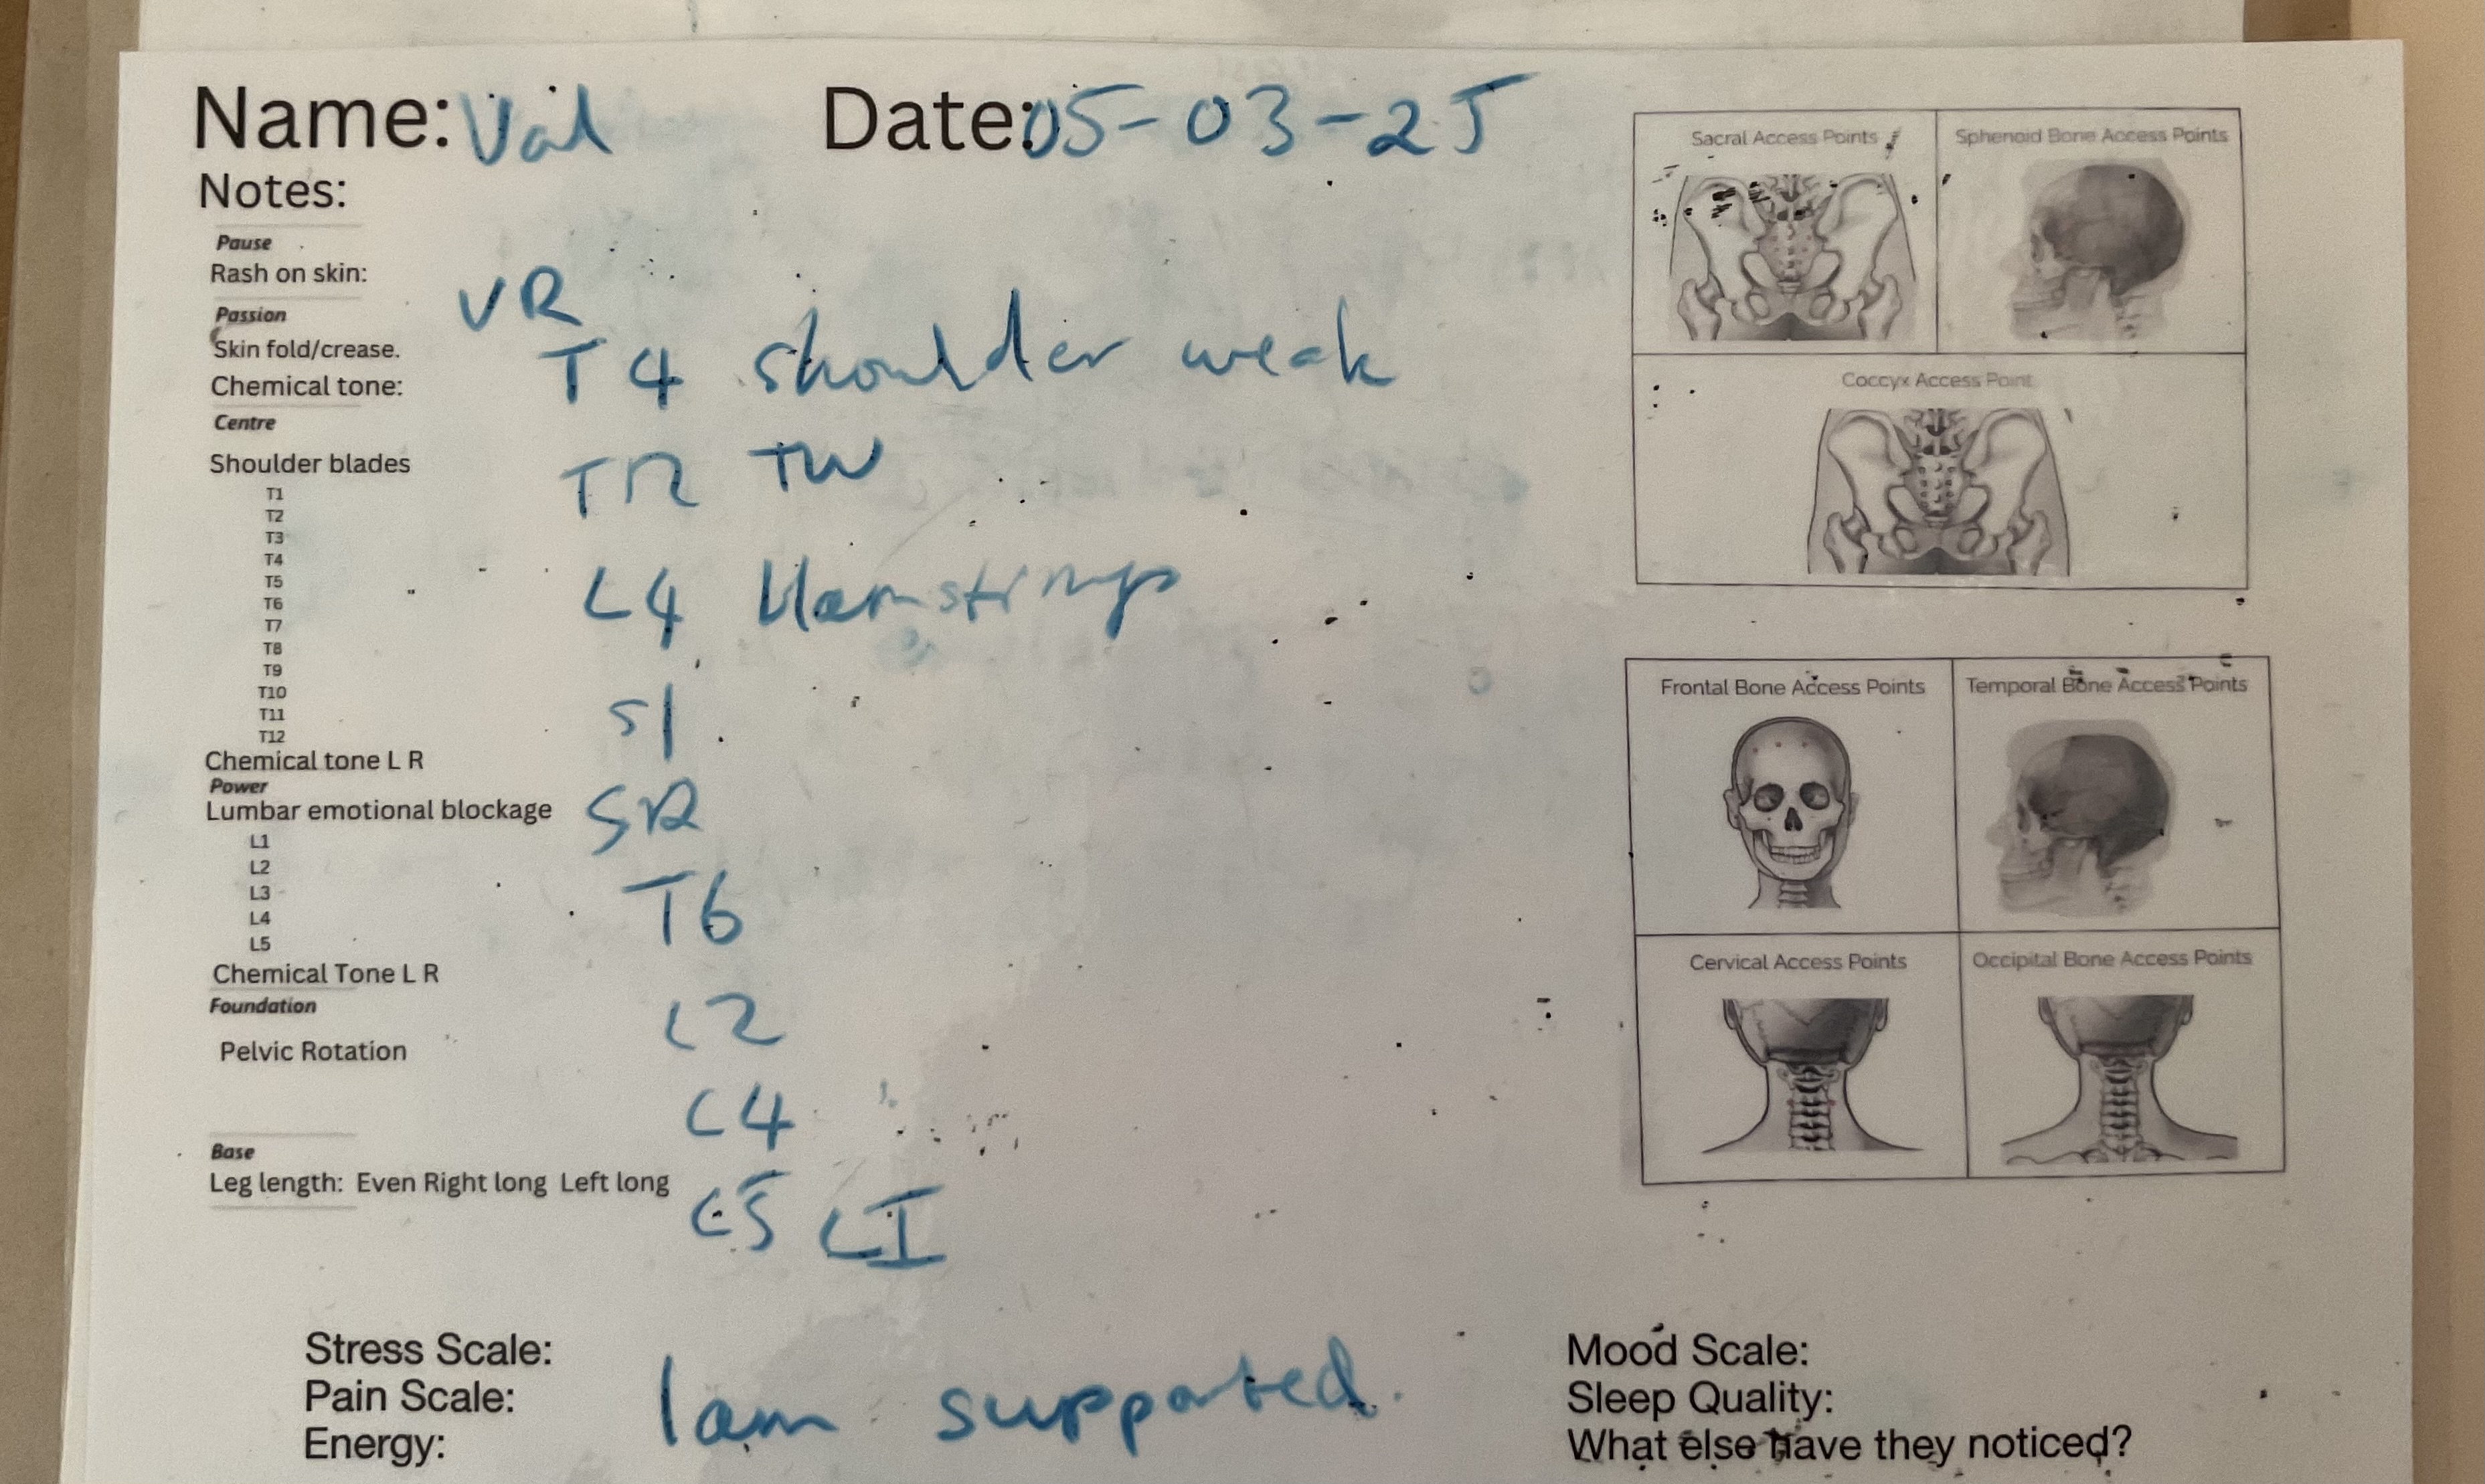 Name: Val Date: 05-03-25
Notes:
Pause
Rash on skin:
VR
Passion
Skin fold/crease.
T4 shoulder weak
Chemical tone:
Centre
Shoulder blades
TW
T1
T2
T3
T4
T5
T6
T7
T8
T9
T10
T11
T12
L4 Hamstrings
S1
Chemical tone L R
Power
Lumbar emotional blockage
SR
L1
L2
L3
L4
L5
T6
Chemical Tone L R
Foundation
Pelvic Rotation
C4
Base
Leg length: Even Right long Left long
C5 LI
Stress Scale:
Pain Scale:
Energy:
I am supported.
Mood Scale:
Sleep Quality:
What else have they noticed?
Sacral Access Points
Sphenoid Bone Access Points
Coccyx Access Point
Frontal Bone Access Points
Temporal Bone Access Points
Cervical Access Points
Occipital Bone Access Points